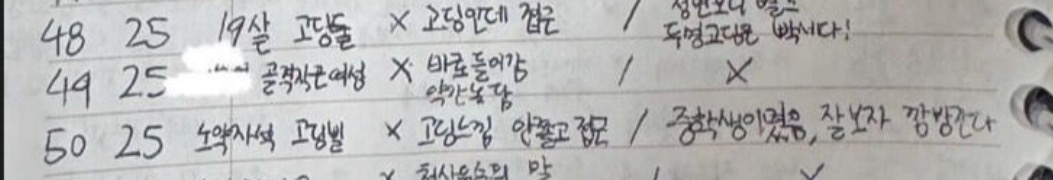 48 25 19살 고딩들 × 고딩인데 접근 /
두명고딩은 빡시다!
49 25 골격작은여성 × 바로들어감 / ×
약간농담
50 25 노약자석 고딩삘 × 고딩느낌 안쫄고 접근 / 중학생이였음, 잘보자 깜방간다
× 말 /